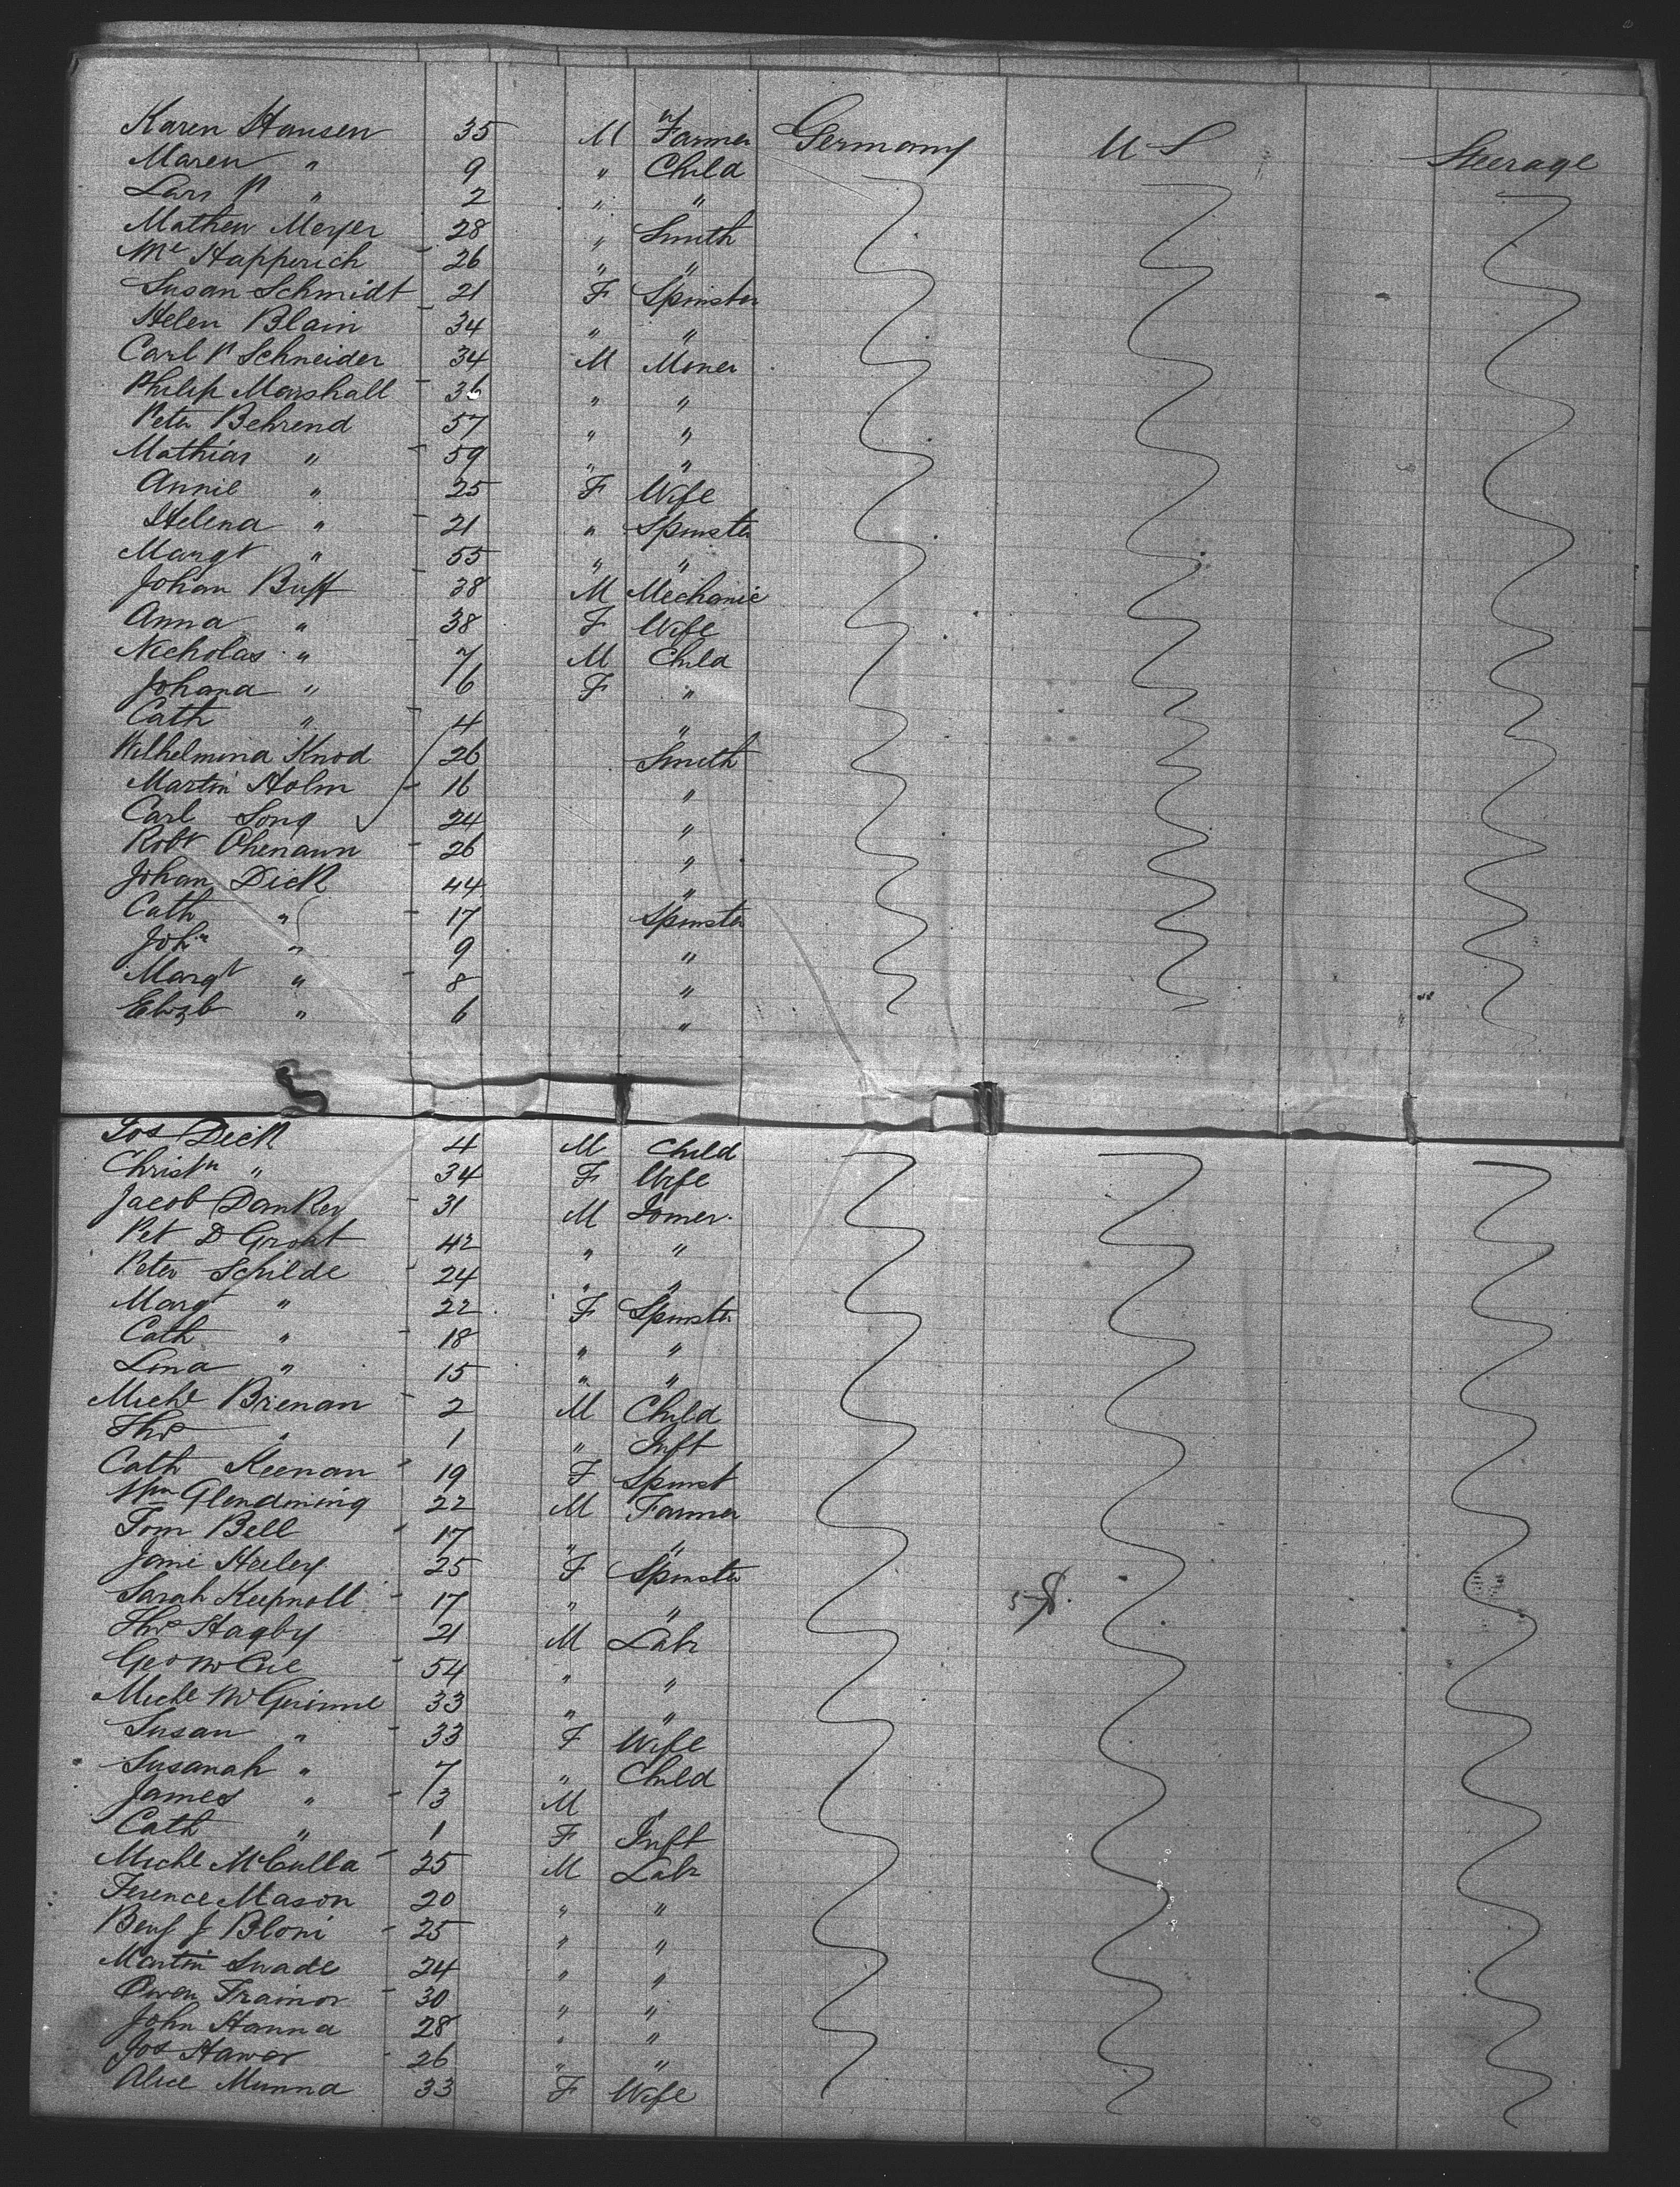 Karen Hansen 35 M Farmer Germany U S Steerage
Maren " 9 " Child
Lars P " 2 " "
Mathew Meyer 28 " Smith
Mc Happerich 26 " "
Susan Schmidt 21 F Spinster
Helen Blain 34 " "
Carl P Schneider 34 M Miner
Philip Marshall 36 " "
Peter Behrend 57 " "
Mathias " 59 " "
Annie " 25 F Wife
Helena " 21 " Spinster
Margt " 55 " "
Johan Buff 38 M Mechanic
Anna " 38 F Wife
Nicholas " 7 M Child
Johana " 6 F "
Cath " 4 "
Wilhelmina Knod 26 Smith
Martin Holm 16 "
Carl Song 24 "
Robt Ohemann 26 "
Johan Dick 44 "
Cath " 17 Spinster
John " 9 "
Margt " 8 "
Elizb " 6 "
Jos Dick 4 M Child
Christn " 34 F Wife
Jacob Danker 31 M Joiner
Pet D Groht 42 " "
Peter Schilde 24 " "
Margt " 22 F Spinster
Cath " 18 " "
Lina " 15 " "
Michl Brenan 2 M Child
Thos " 1 " Inft
Cath Keenan 19 F Spinst
Wm Glendining 22 M Farmer
Tom Bell 17 " "
Jane Heeley 25 F Spinster
Sarah 17 " "
Thos Hagby 21 M Labr
Geo 54 " "
Michl McGuinne 33 " "
Susan " 33 F Wife
Susanah " 7 " Child
James " 3 M
Cath " 1 F Inft
Michl McCulla 25 M Labr
Terence Mason 20 " "
Benj J Bloni 25 " "
Martin Snade 24 " "
Owen Trainor 30 " "
John Hanna 28 " "
Jos Hawer 26 " "
Alice Munna 33 F Wife